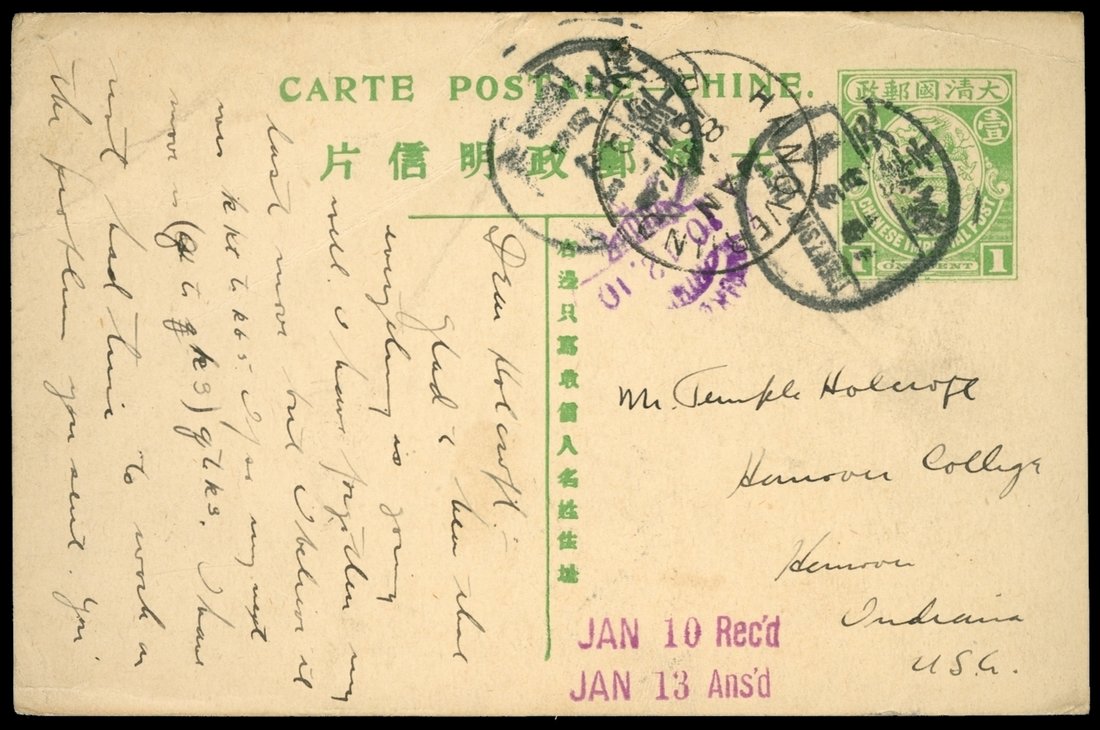 CARTE POSTALE–CHINE.
大清郵政明信片
大清國郵政
壹
CHINESE IMPERIAL POST
1 ONE CENT 1
右邊只寫收個人名姓住址
HANOVER
JAN
IND.
Dear Holcroft.
Glad to hear that
everything is going
well. I have forgotten my
last move but I believe it
was kkt to kb5. If so my next
move is (Q to Q k3) Q-tk3. I have
not had time to work on
the problem you sent you.
Mr. Temple Holcroft
Hanover College
Hanover
Indiana
U.S.A.
JAN 10 Rec'd
JAN 13 Ans'd